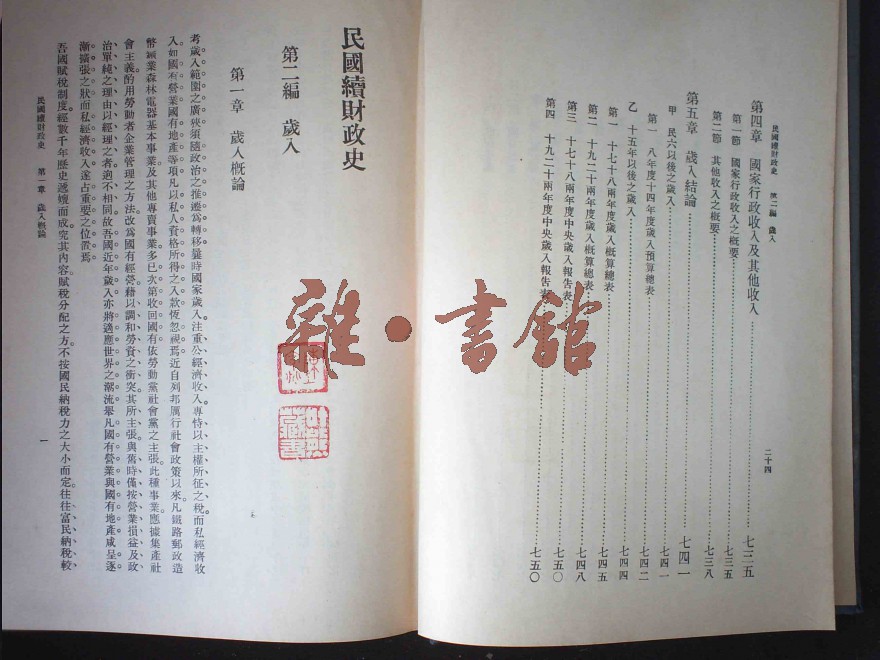 民國續財政史 第二編 歲入
二十四
第四章 國家行政收入及其他收入……七三五
第一節 國家行政收入之概要……七三五
第二節 其他收入之概要……七三八
第五章 歲入結論……七四一
甲 民六以後之歲入……七四一
第一 八年度十四年度歲入預算總表……七四二
乙 十五年以後之歲入……七四四
第一 十七十八兩年度歲入概算總表……七四五
第二 十九二十兩年度歲入概算總表……七四八
第三 十七十八兩年度中央歲入報告表……七五〇
第四 十九二十兩年度中央歲入報告表……七五〇
民國續財政史
第二編 歲入
第一章 歲入概論
考歲入範圍之廣狹須隨政治之推遷為轉移曩時國家歲入注重公經濟收入專恃以主權所征之稅而私經濟收
入如國有營業國有地產等項凡以私人資格所得之入款恆忽視焉近自列邦厲行社會政策以來凡鐵路郵政造
幣礦業森林電器基本事業及其他專賣事業多已次第收回國有依勞動黨社會黨之主張此種事業應據集產社
會主義酌用勞動者企業管理之方法改為國有經營藉以調和勞資之衝突其所主張與舊時僅按營業損益及政
治單純之理由以經理之者逈不相同故吾國近年歲入亦將適應世界之潮流舉凡國有營業與國有地產咸呈逐
漸擴張之狀而私經濟收入遂占重要之位置焉
吾國賦稅制度經數千年歷史遞嬗而成究其內容賦稅分配之方不按國民納稅力之大小而定往往富民納稅較
民國續財政史 第一章 歲入概論
一
雜·書館